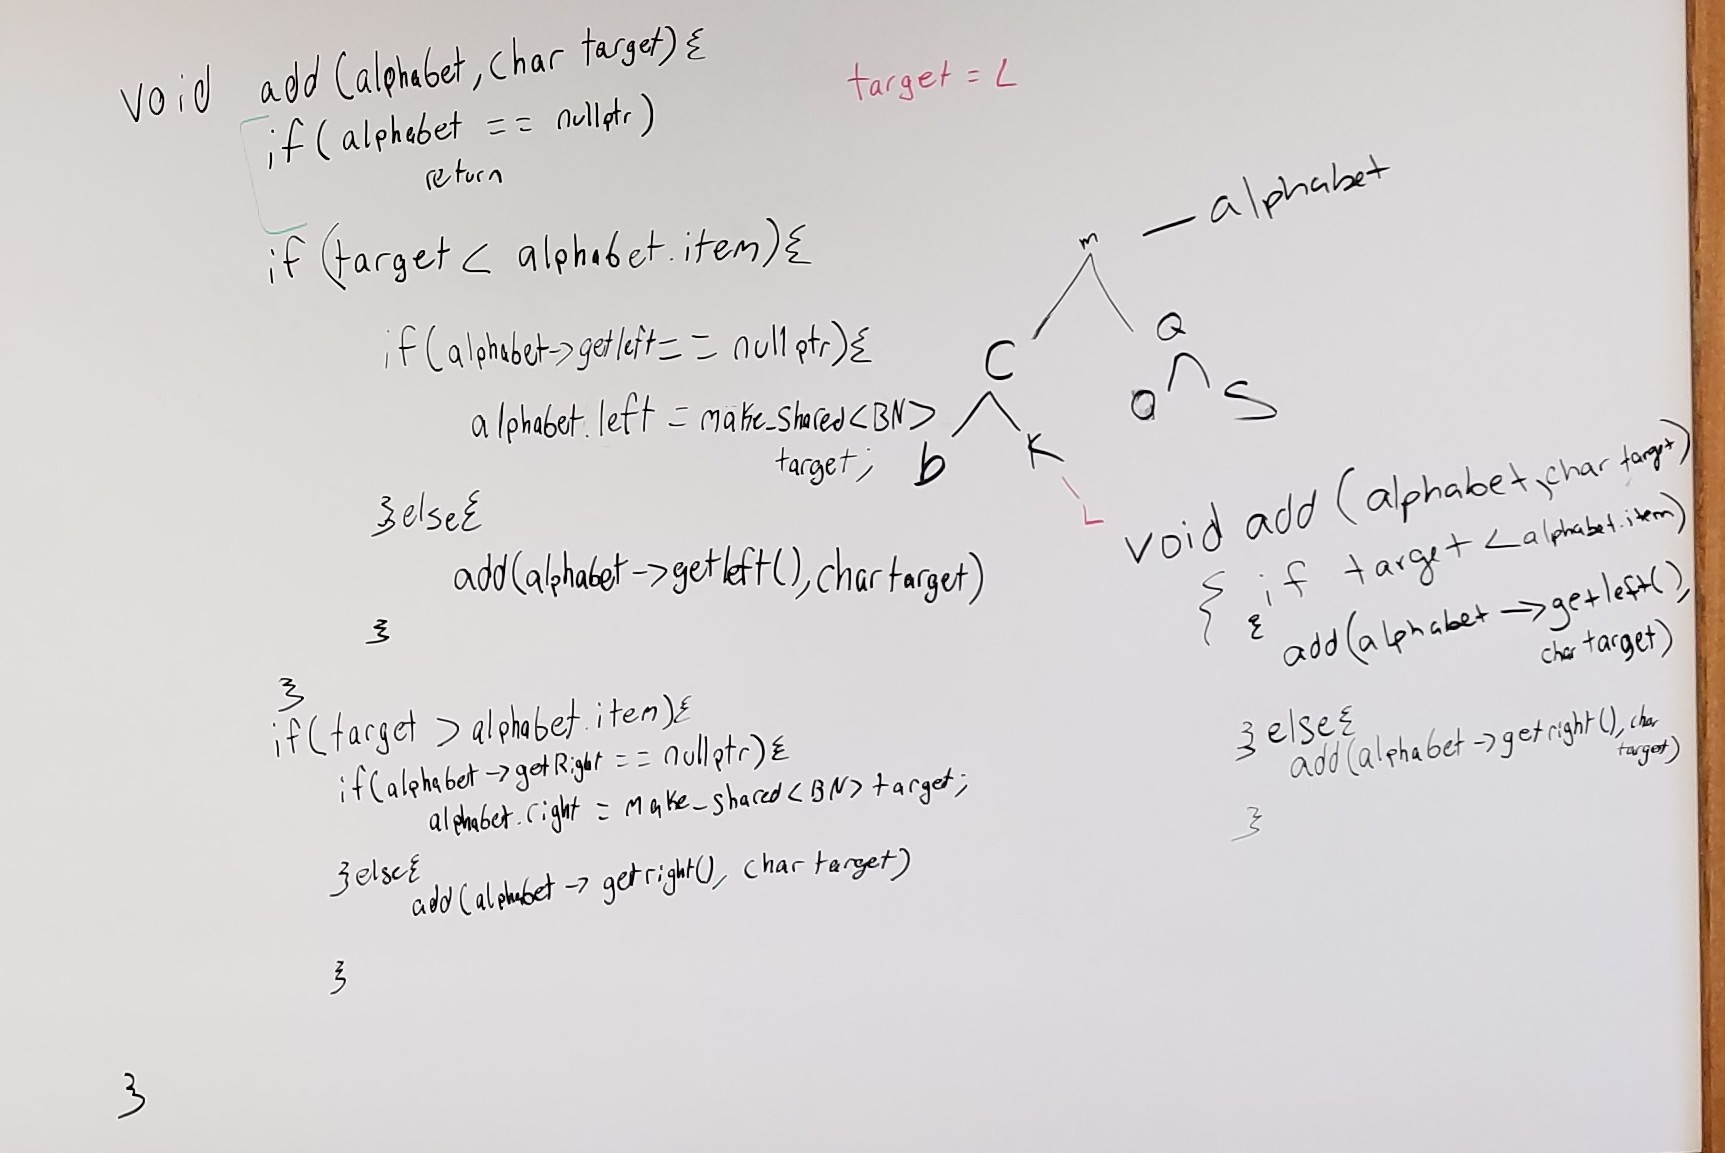 void add (alphabet, char target) {
if (alphabet == nullptr)
return
if (target < alphabet.item) {
if (alphabet->getleft == nullptr) {
alphabet.left = make_shared<BN>
target;
} else {
add(alphabet->getleft(), char target)
}
}
if (target > alphabet.item) {
if (alphabet->getRight == nullptr) {
alphabet.right = make_shared<BN> target;
} else {
add (alphabet -> getright(), char target)
}
}
target = L
m — alphabet
C Q
b K O S
L
void add (alphabet, char target)
{ if target < alphabet.item)
{
add(alphabet -> getleft(),
char target)
} else {
add (alphabet -> getright(), char
target)
}